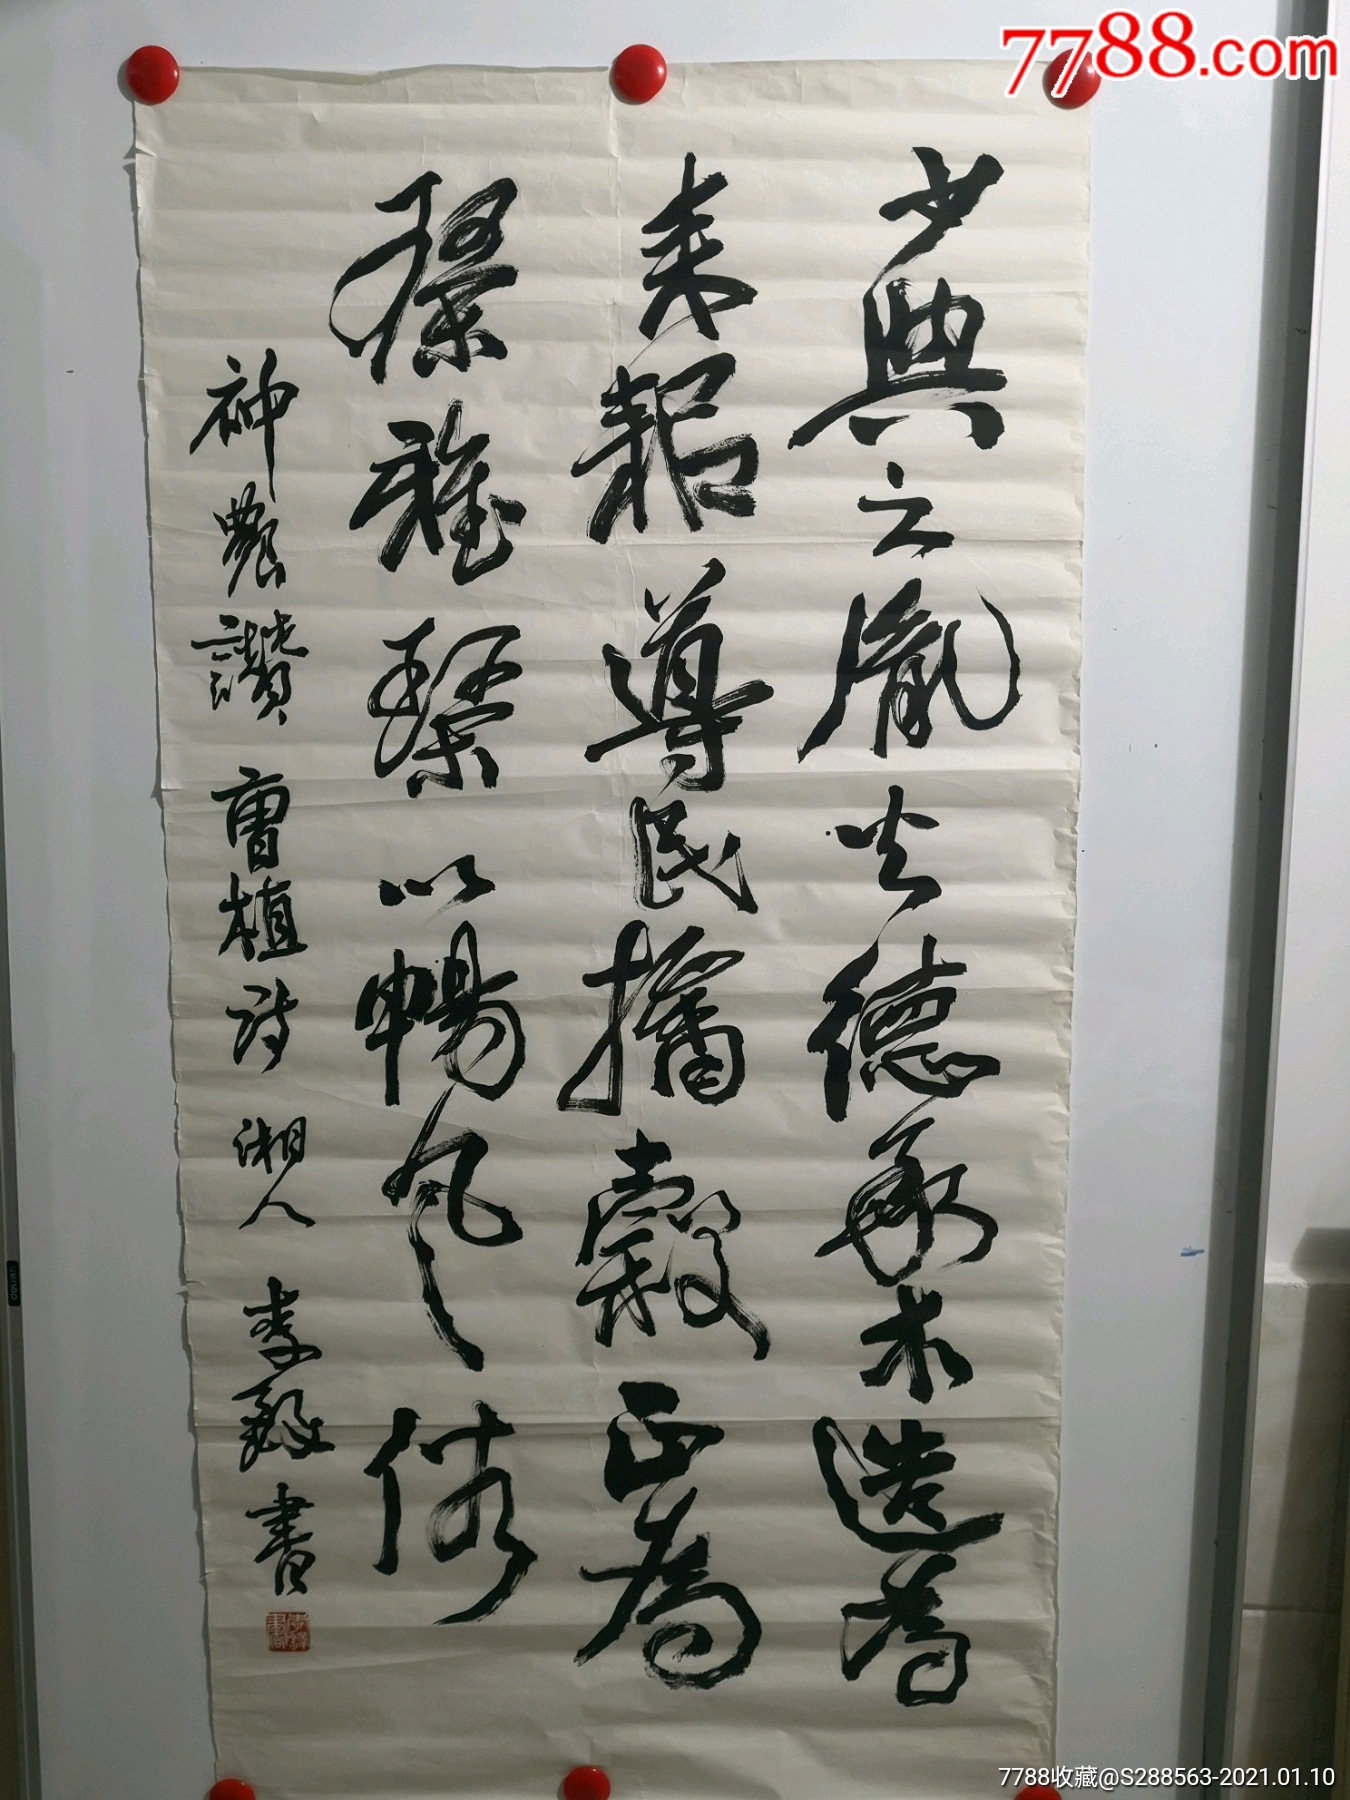 7788.com
少典之胤火德承木造為
耒耜導民播穀正為
雅琴以暢風俗
神農讚 曹植詩 湘人 李 書
7788收藏@S288563-2021.01.10